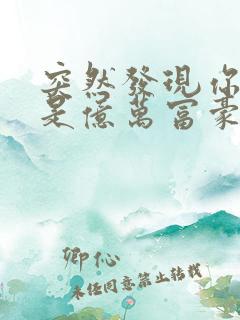 突然發現你
是億萬富豪
卿心
未經同意禁止轉載